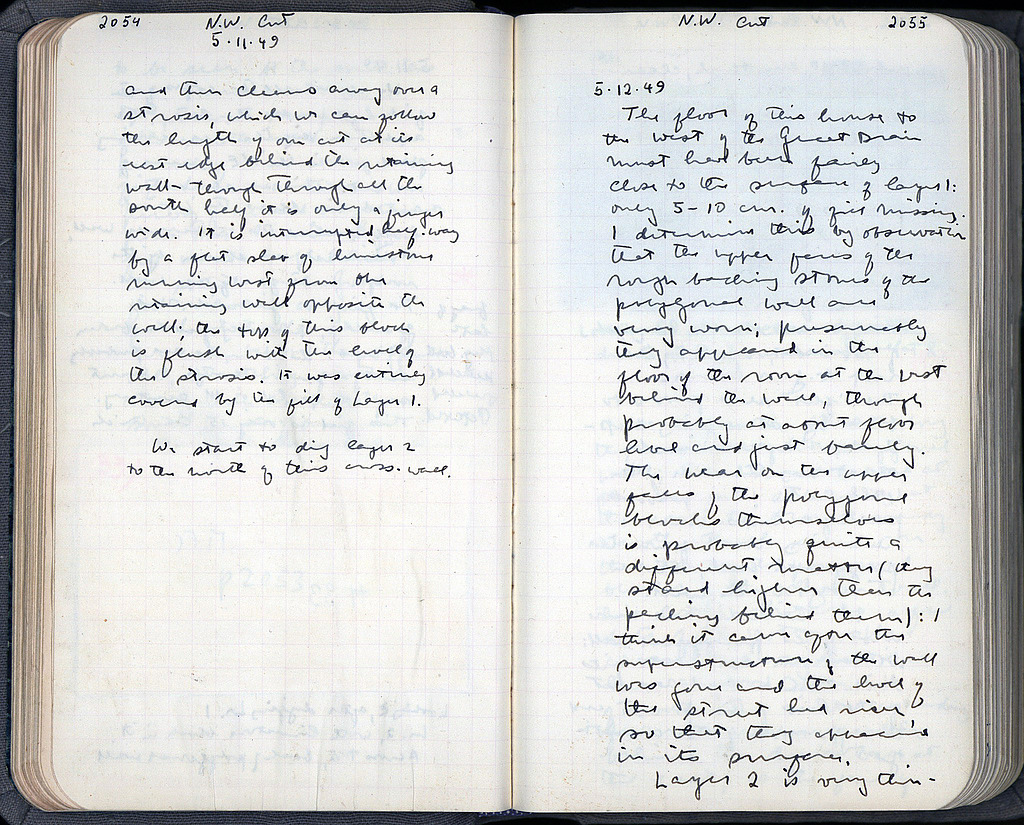 2054 N.W. Cut
5·11·49
and then cleans away over a
strosis, which we can follow
the length of our cut at its
east edge behind the retaining
wall – though through all the
south half it is only a finger
wide. It is interrupted half-way
by a flat slab of limestone
running west from the
retaining wall opposite the
well; the top of this block
is flush with the level of
the strosis. It was entirely
covered by the fill of Layer 1.
We start to dig layer 2
to the north of this cross-wall.
N.W. Cut 2055
5·12·49
The floor of this house to
the west of the Great Drain
must have been fairly
close to the surface of layer 1:
only 5–10 cm. of fill missing.
I determine this by observation
that the upper faces of the
rough backing stones of the
polygonal wall are
very worn; presumably
they appeared in the
floor of the room at the west
behind the wall, though
probably at about floor
level and just barely.
The wear on the upper
faces of the polygonal
blocks themselves
is probably quite a
different matter (they
stand higher than the
packing behind them): I
think it came upon the
superstructure of the wall
was gone and the level of
the street had risen,
so that they appeared
in its surface.
Layer 2 is very thin –